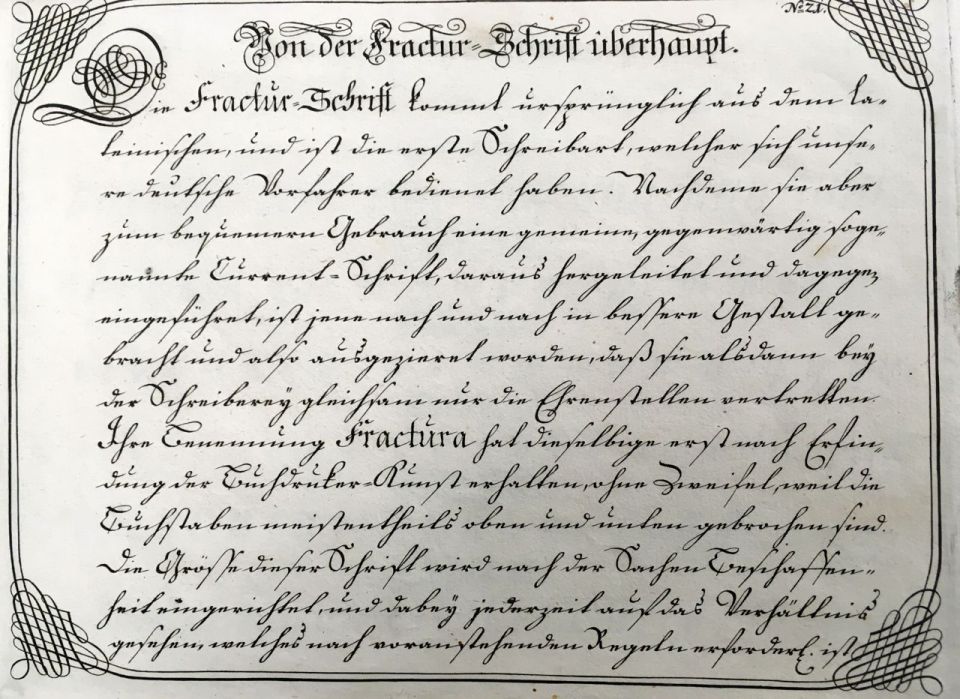 No. 21.
Von der Fractur-Schrift überhaupt.
Die Fractur-Schrift kommt ursprünglich aus dem la-
teinischen, und ist die erste Schreibart, welcher sich unse-
re deutsche Vorfahrer bedienet haben. Nachdeme sie aber
zum bequemern Gebrauch eine gemeine, gegenwärtig soge-
nannte Current-Schrift, daraus hergeleitet und dagegen
eingeführet, ist jene nach und nach in bessere Gestalt ge-
bracht und also ausgezieret worden, daß sie alsdann bey
der Schreiberey gleichsam nur die Ehrenstellen vertretten.
Ihre Benennung Fractura hat dieselbige erst nach Erfin-
dung der Buchdruker-Kunst erhalten, ohne Zweifel, weil die
Buchstaben meistentheils oben und unten gebrochen sind.
Die Grösse dieser Schrift wird nach der Sachen Beschaffen-
heit eingerichtet, und dabey jederzeit auf das Verhältnis
gesehen, welches nach voranstehenden Regeln erfordert ist